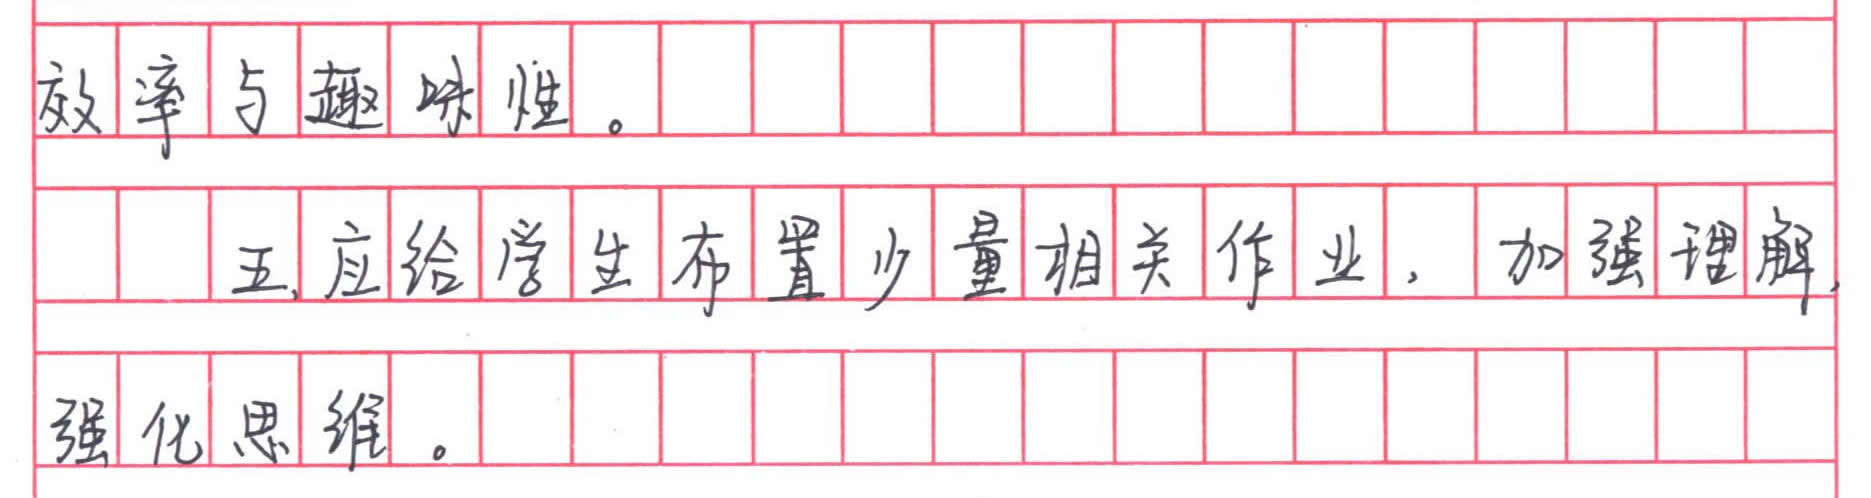 效率与趣味性。
五、应给学生布置少量相关作业，加强理解，
强化思维。